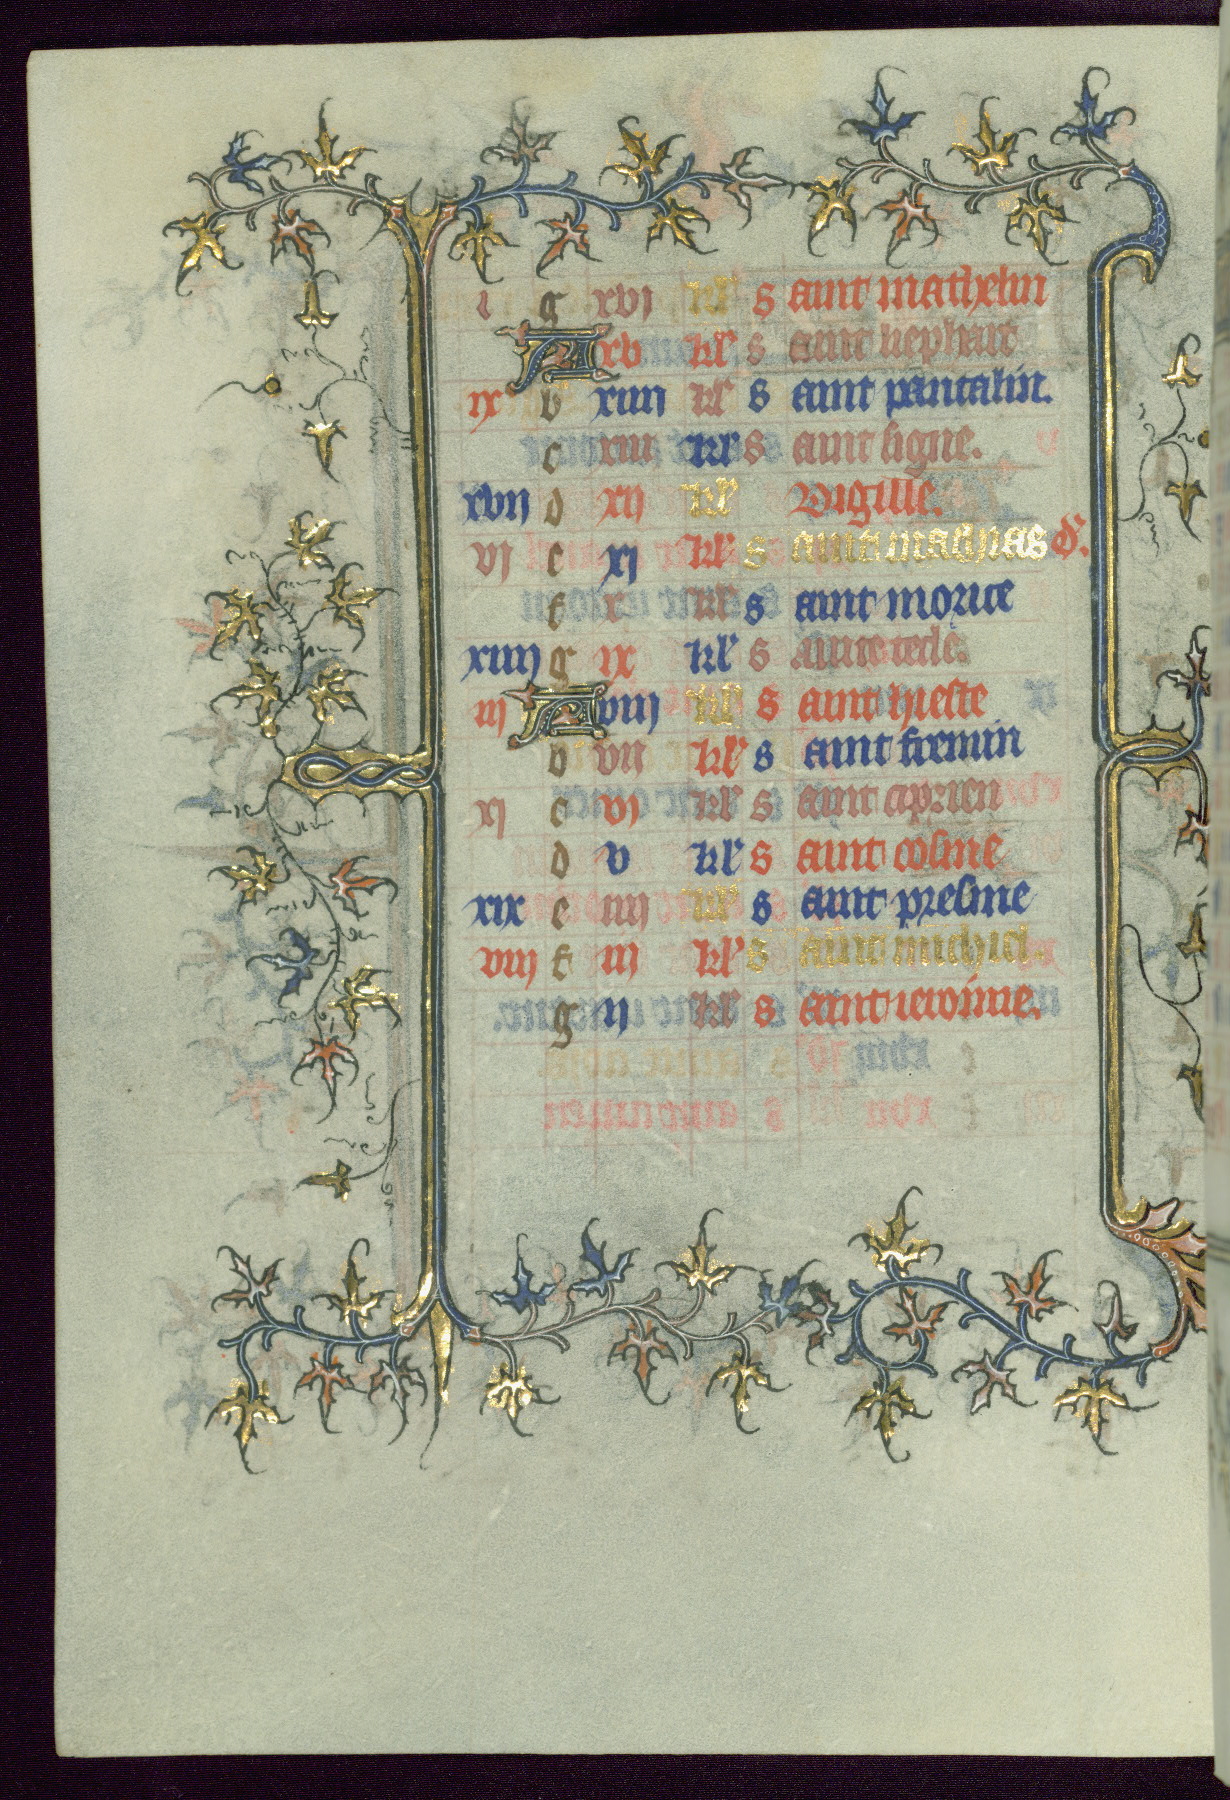 i g xvj kl' s aint mathelin
A xv kl' s
ix b xiiij kl' s aint pantalin.
c xiii kl' s aint signe.
xvij d xij kl' vigille.
vj e xj kl' s aint matheus d'.
f x kl' s aint morice
xiiij g ix kl' s ainte tecle.
iij A viij kl' s aint
b vij kl' s aint fremin
xj c vj kl' s aint ciprien
d v kl' s aint cosme
xix e iiij kl' s aint presme
viij f iij kl' s aint michiel.
g ij kl' s aint ieroime.